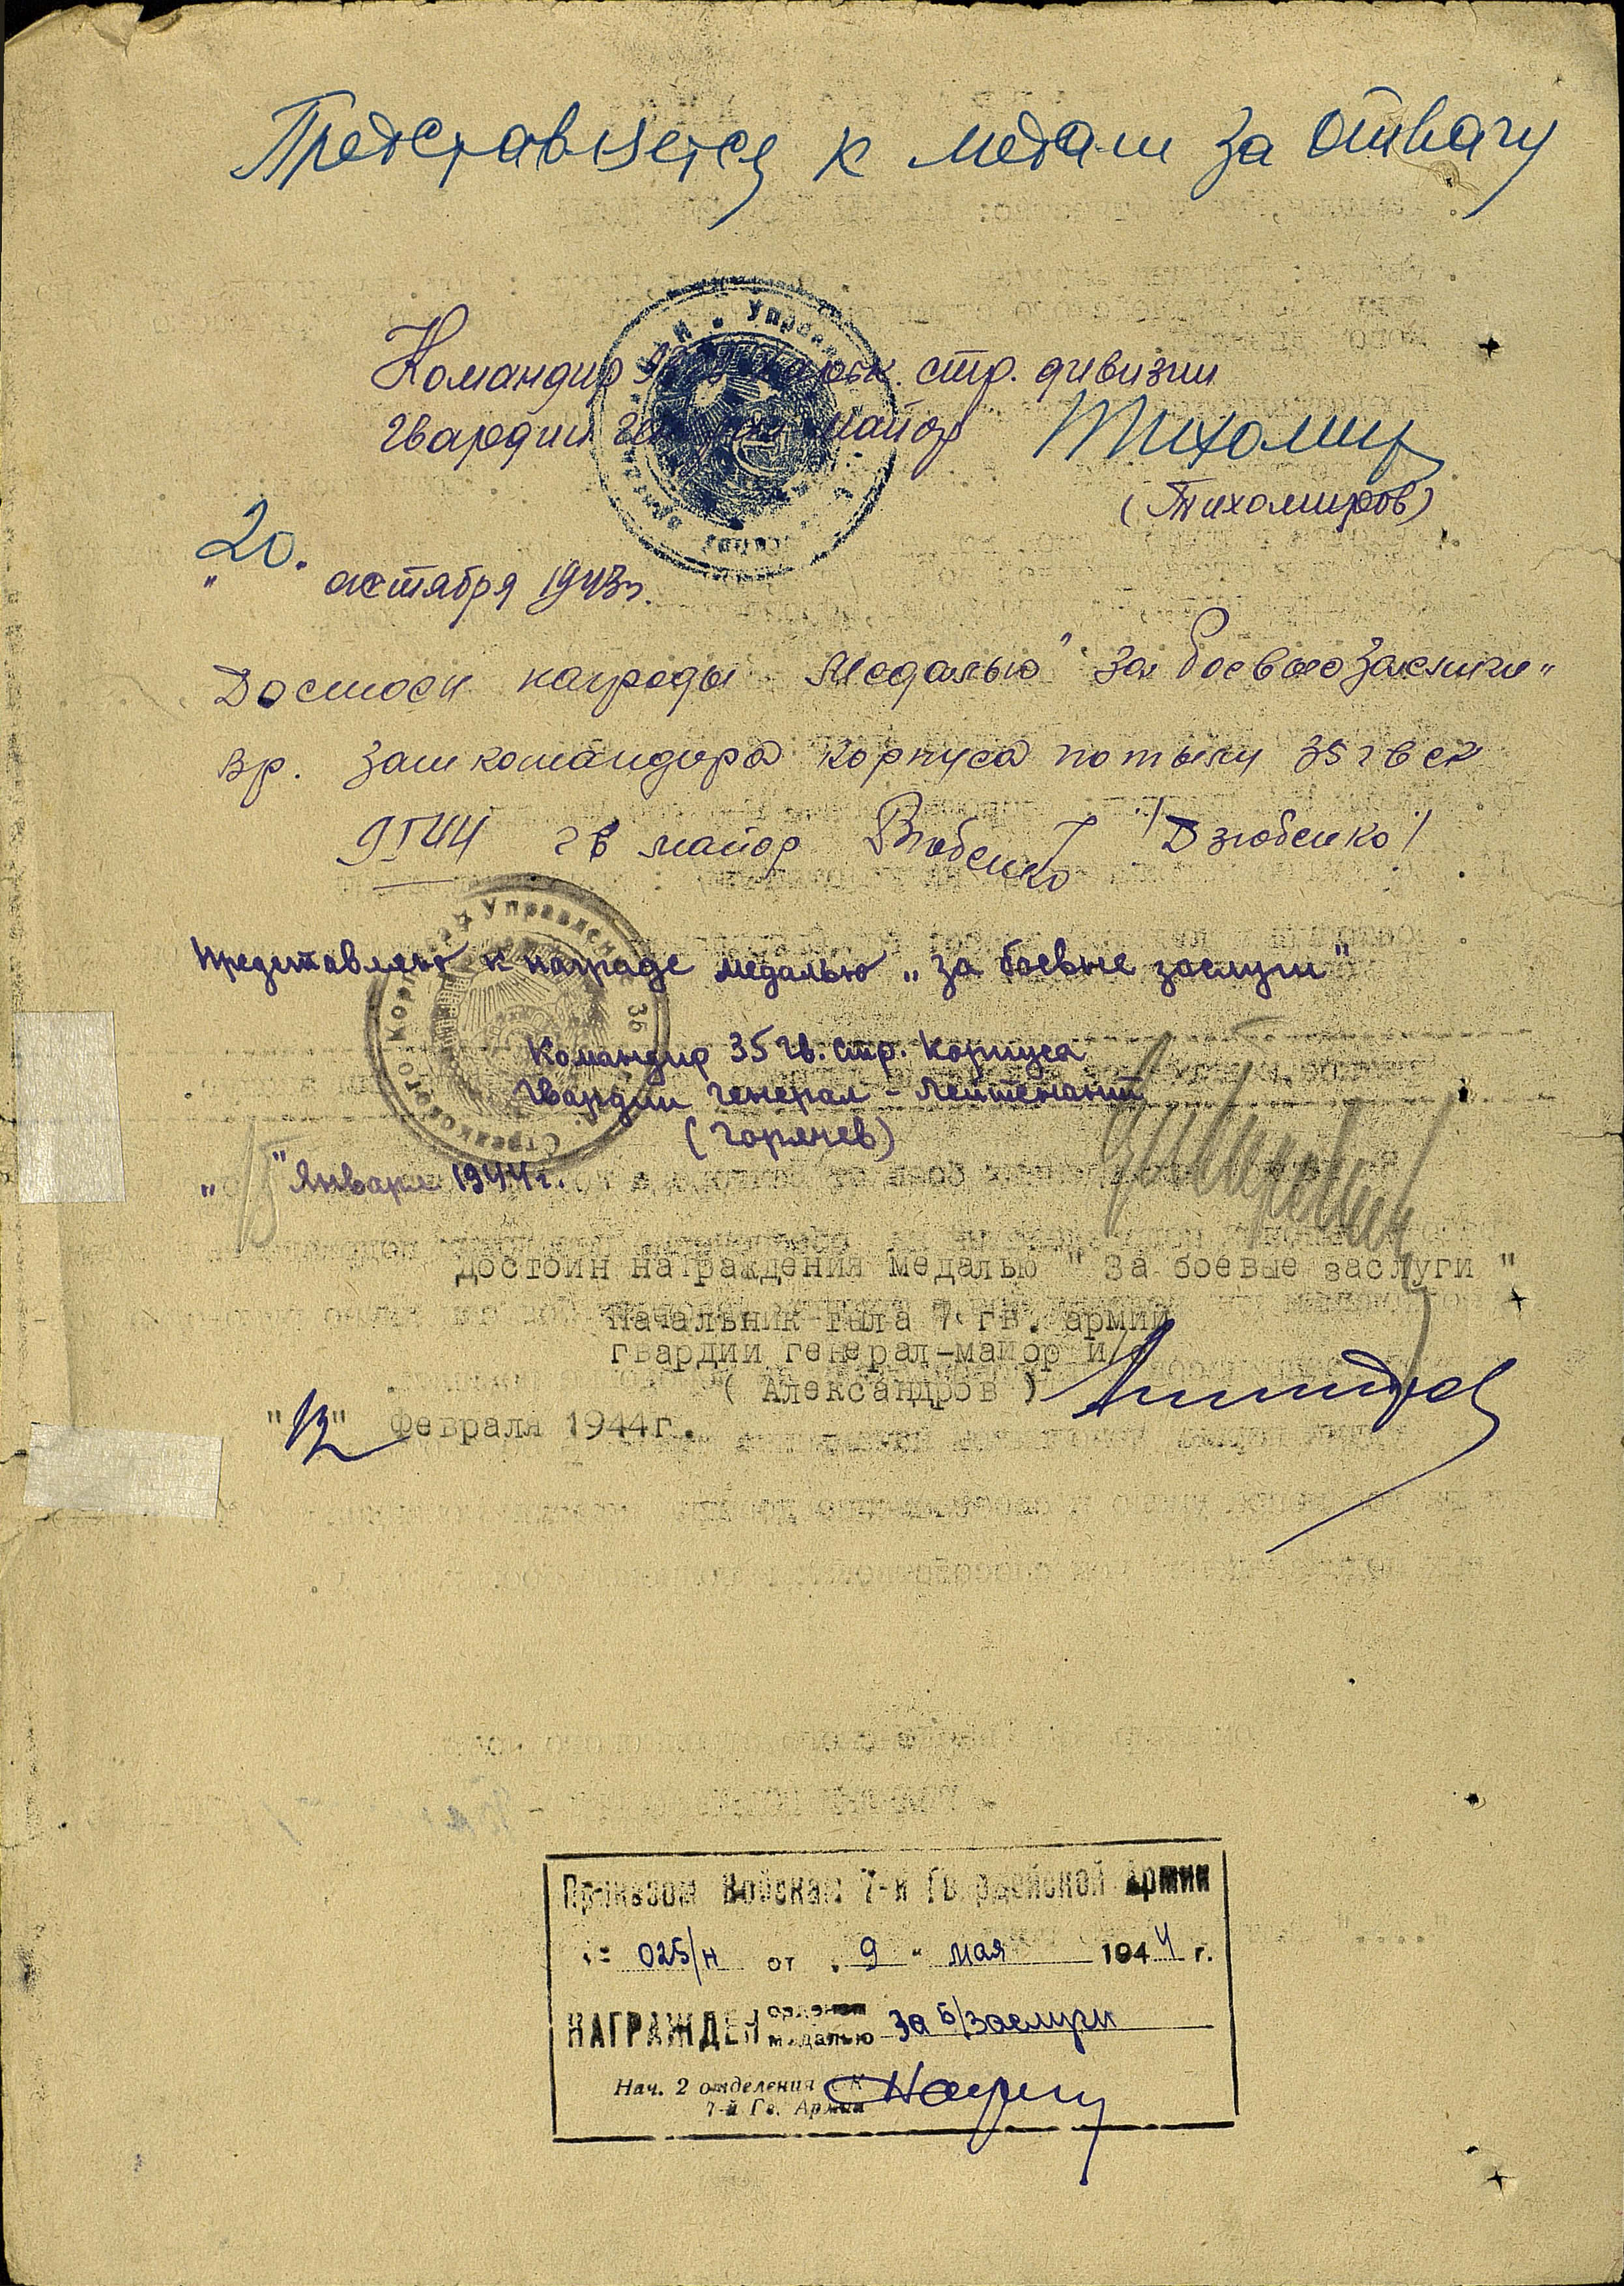 Представляется к медали за отвагу
Командир 93 гв. Харьк. стр. дивизии
гвардии генерал майор Тихомир
(Тихомиров)
"20" октября 1943г.
Достоен награды медалью "За боевые заслуги"
вр. замкомандира корпуса по тылу 35 гв ск
9 I 44 гв майор Дзюбенко /Дзюбенко/
Представляю к награде медалью „за боевые заслуги"
Командир 35 гв. стр. корпуса
гвардии генерал-лейтенант
(Горячев)
„15" Января 1944 г.
достоин награждения медалью " За боевые заслуги "
Начальник тыла 7 гв. армии
гвардии генерал-майор и/с
( Александров )
"12" февраля 1944г.
Приказом Войскам 7-й Гвардейской Армии
№ 025/н от "9" мая 1944 г.
НАГРАЖДЕН орденом
медалью За б/заслуги
Нач. 2 отделения ОК
7-й Гв. Армии